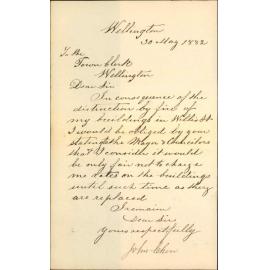 Wellington
30 May 1882
To the
Town Clerk
Wellington
Dear Sir
In consequence of the
distruction by fire of
my buildings in Willis St
I would be obliged by your
stating the Mayor & Councilors
that I consider it would
be only fair not to charge
me rates on the buildings
until such time as they
are replaced
I remain
Dear Sir
Yours respectfully
John